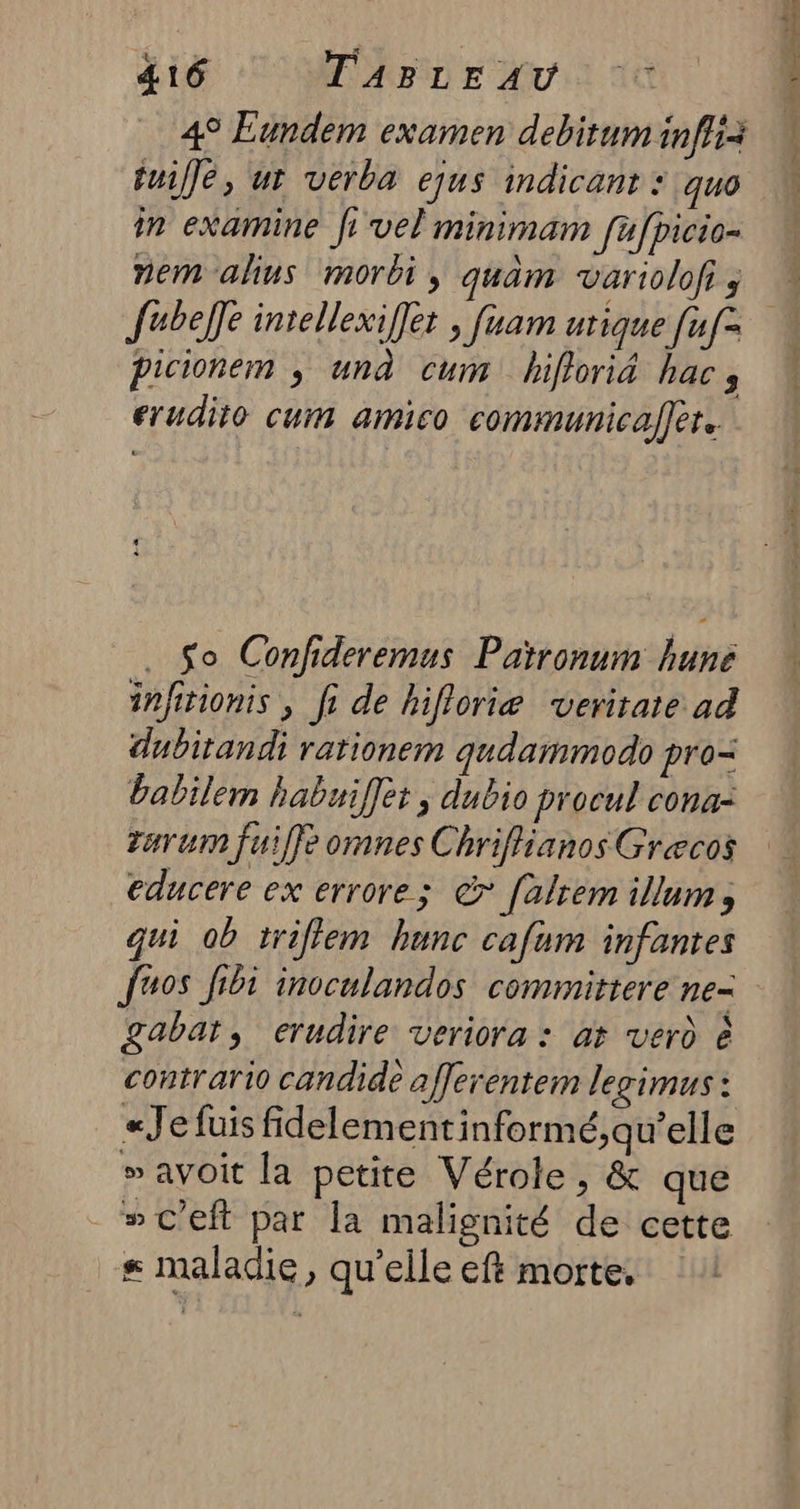 416 TABLEAU
4° Eundem examen debitum insti-
tuisse, ut verba ejus indicant : quo
in examine si vel minimam suspicio-
nem alius morbi, quàm variolosi,
subesse intellexisset, suam utique sus-
picionem, unà cum historiâ hac,
erudito cum amico communicasset.
5° Consideremus Patronum hunc
insitionis, si de historiæ veritate ad
dubitandi rationem qudammodo pro-
babilem habuisset, dubio procul cona-
turum fuisse omnes Christianos Græcos
educere ex errore; & saltem illum,
qui ob tristem hunc casum infantes
suos sibi inoculandos committere ne-
gabat, erudire veriora : at verò è
contrario candidè asserentem legimus :
« Je suis fidelement informé, qu'elle
» avoit la petite Vérole, & que
» c'est par la malignité de cette
« maladie, qu'elle est morte.